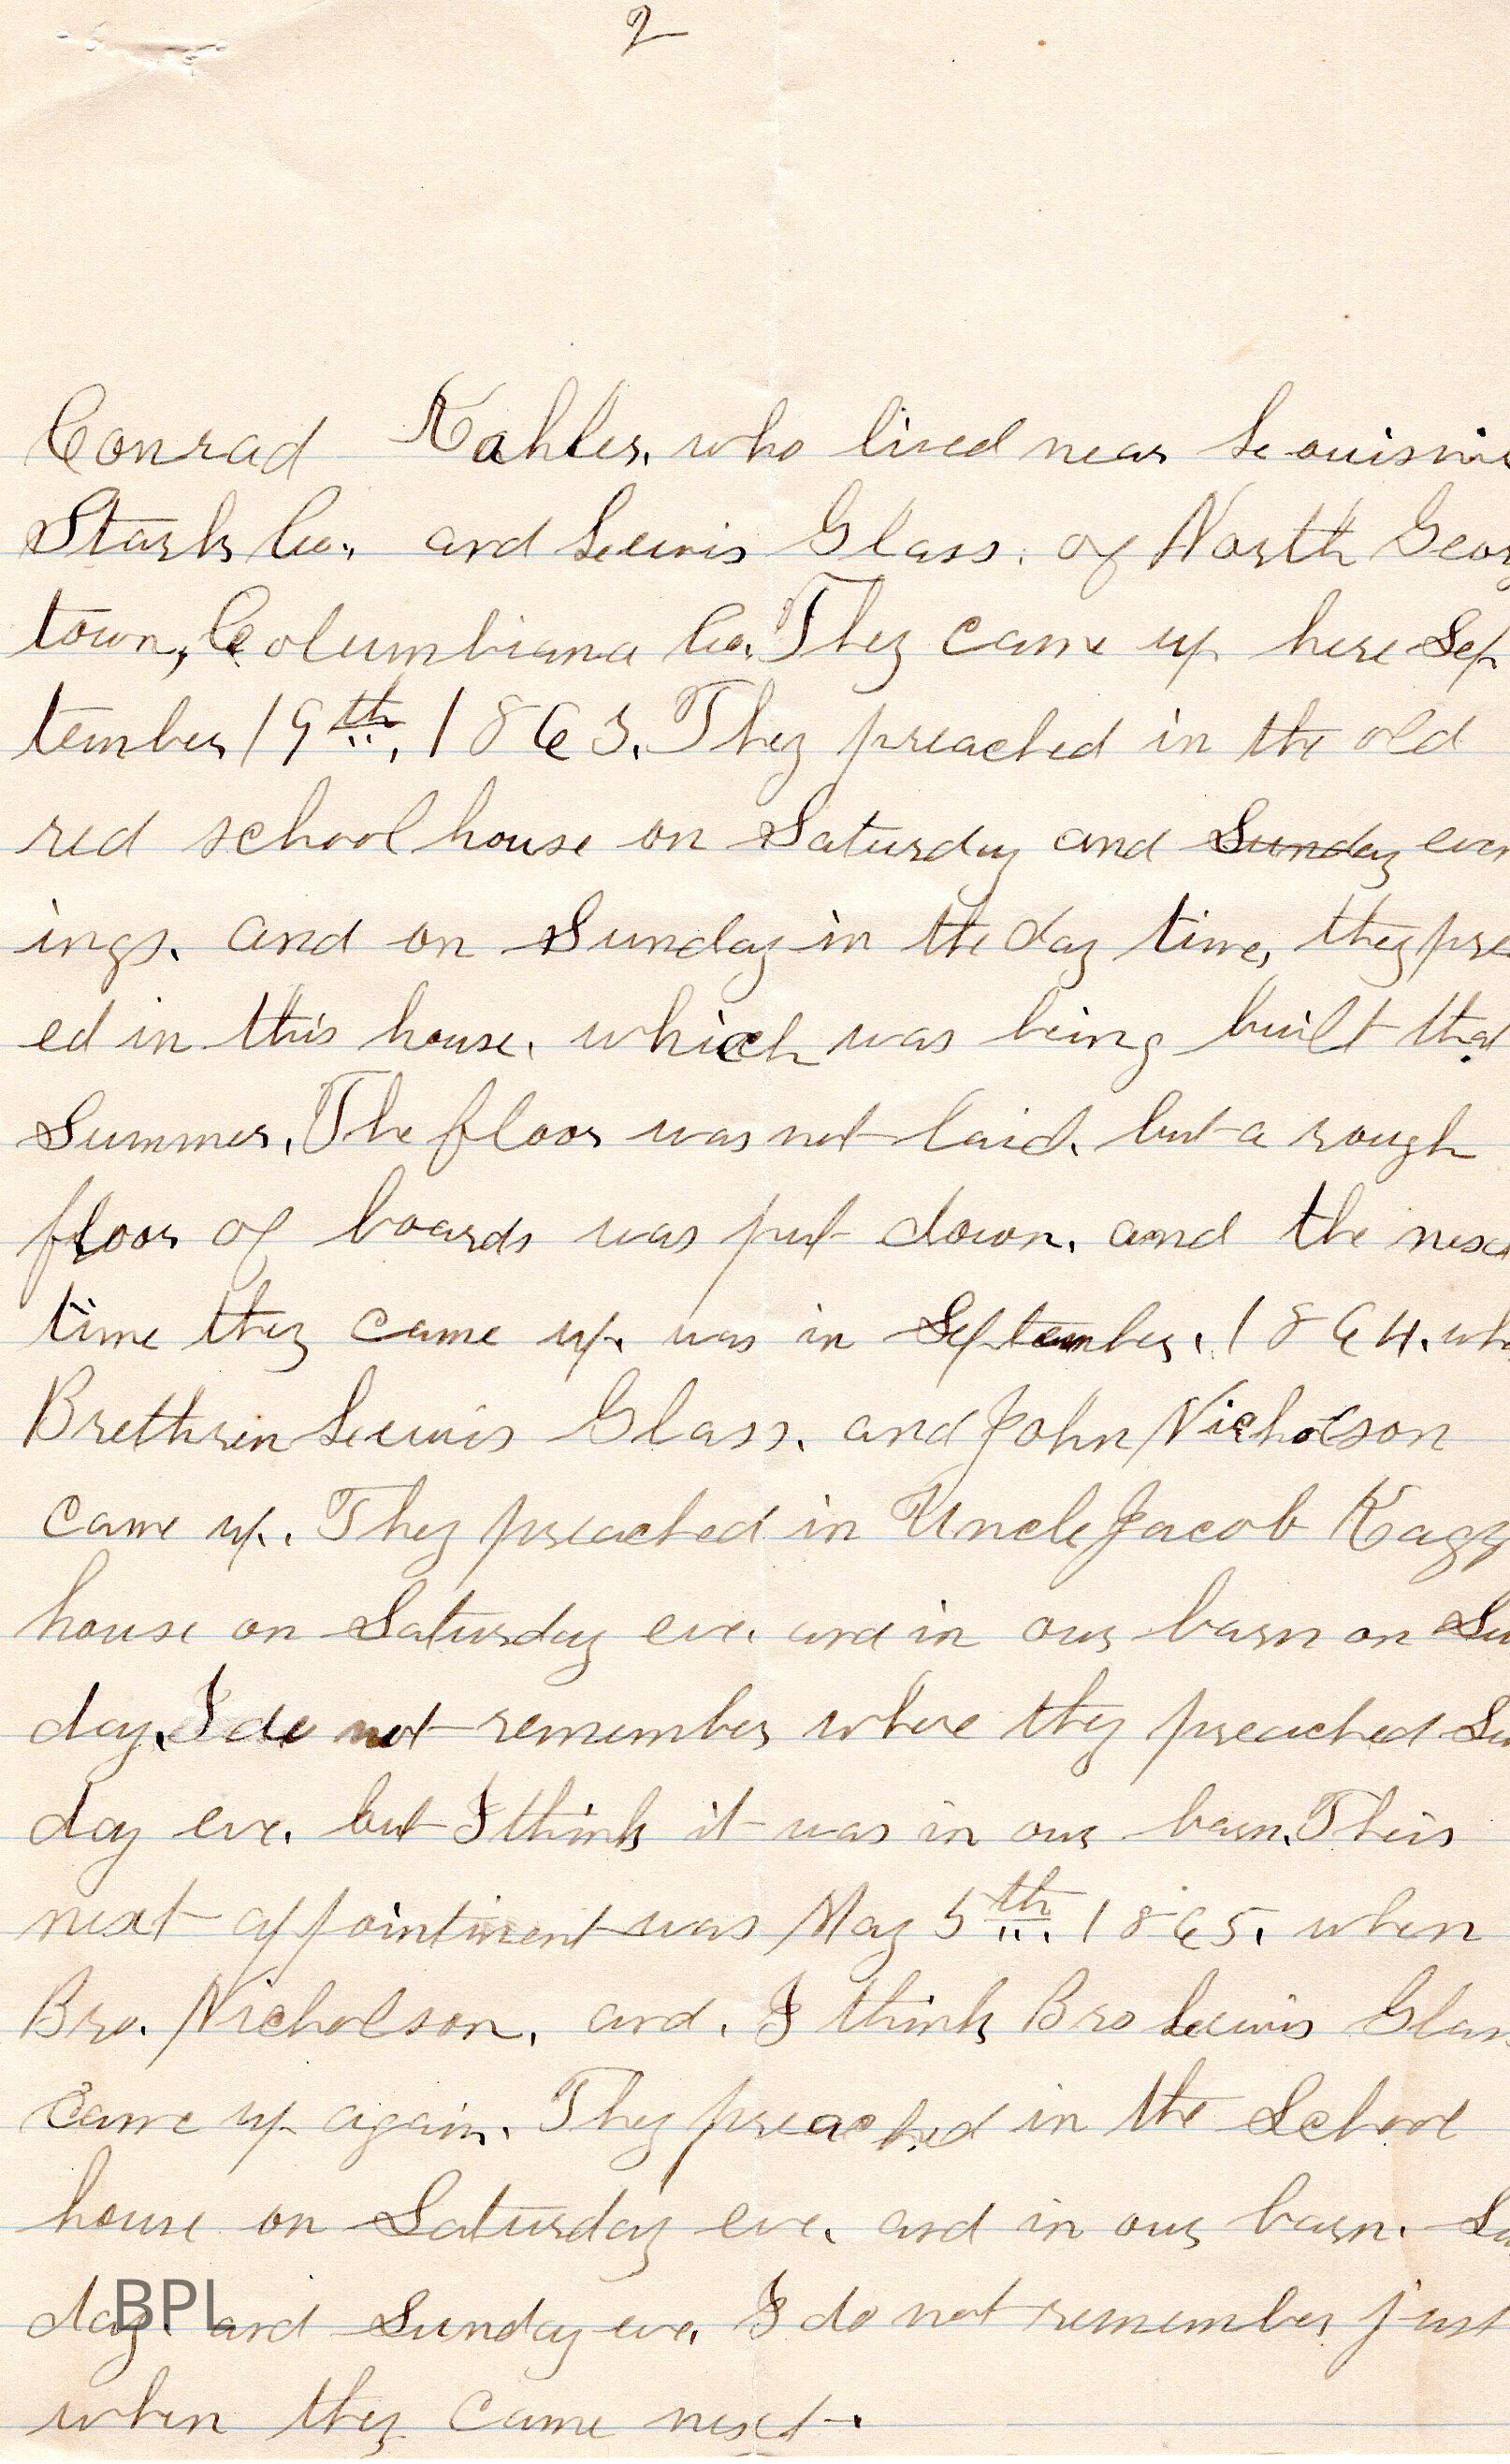 2
Conrad Kahler, who lived near Louisvi
Stark Co., and Lewis Glass, of North Geor
town, Columbiana Co. They came up here Sep
tember 19th, 1863. They preached in the old
red school house on Saturday and Sunday even
ings. and on Sunday in the day time, they pre
ed in this house, which was being built that
Summer. The floor was not laid, but a rough
floor of boards was put down, and the next
time they came up, was in September, 1864. whe
Brethren Lewis Glass, and John Nicholson
came up. They preached in Uncle Jacob Kagy
house on Saturday eve, and in our barn on Su
day, I do not remember where they preached Su
day eve, but I think it was in our barn. Their
next appointment was May 5th, 1865, when
Bro. Nicholson, and, I think Bro Lewis Glass
Came up again. They preached in the School
house on Saturday eve, and in our barn, Su
day and Sunday eve, I do not remember just
when they came next.
BPL